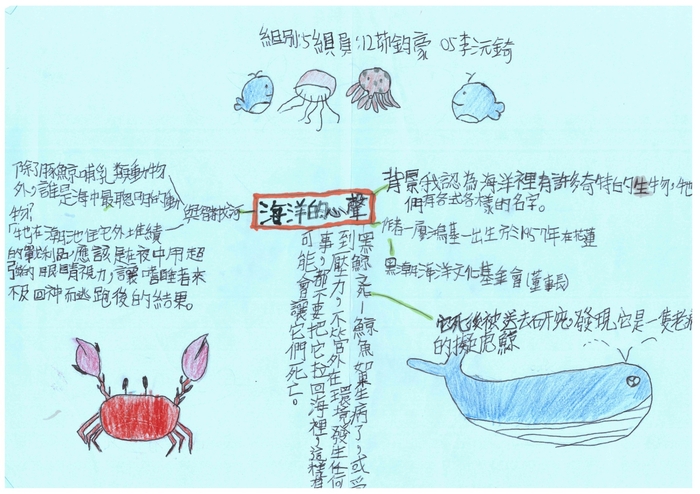 組別:5 組員:12茆鈞豪 05李沅錡
除了豚鯨哺乳類動物
外,誰是海中最聰明的動
物?
牠在潮池住宅外堆積
的戰利品,應該是在夜中用超
強的眼睛視力,讓嗜睡者來
不及回神而逃跑後的結果。
與智救河
海洋的心聲
背景 我認為海洋裡有許多奇特的生物,牠
們有各式各樣的名字。
作者-廖鴻基-出生於1957年在花蓮
黑潮海洋文化基金會(董事長)
黑鯨之死-鯨魚如果生病了,或受
到壓力,不然當外在環境發生任何
事,都不要把它拉回海裡,這樣有
可能會讓它們死亡。
它死後被送去研究,發現它是一隻老病
的擬虎鯨